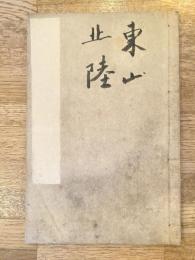 東山
北陸